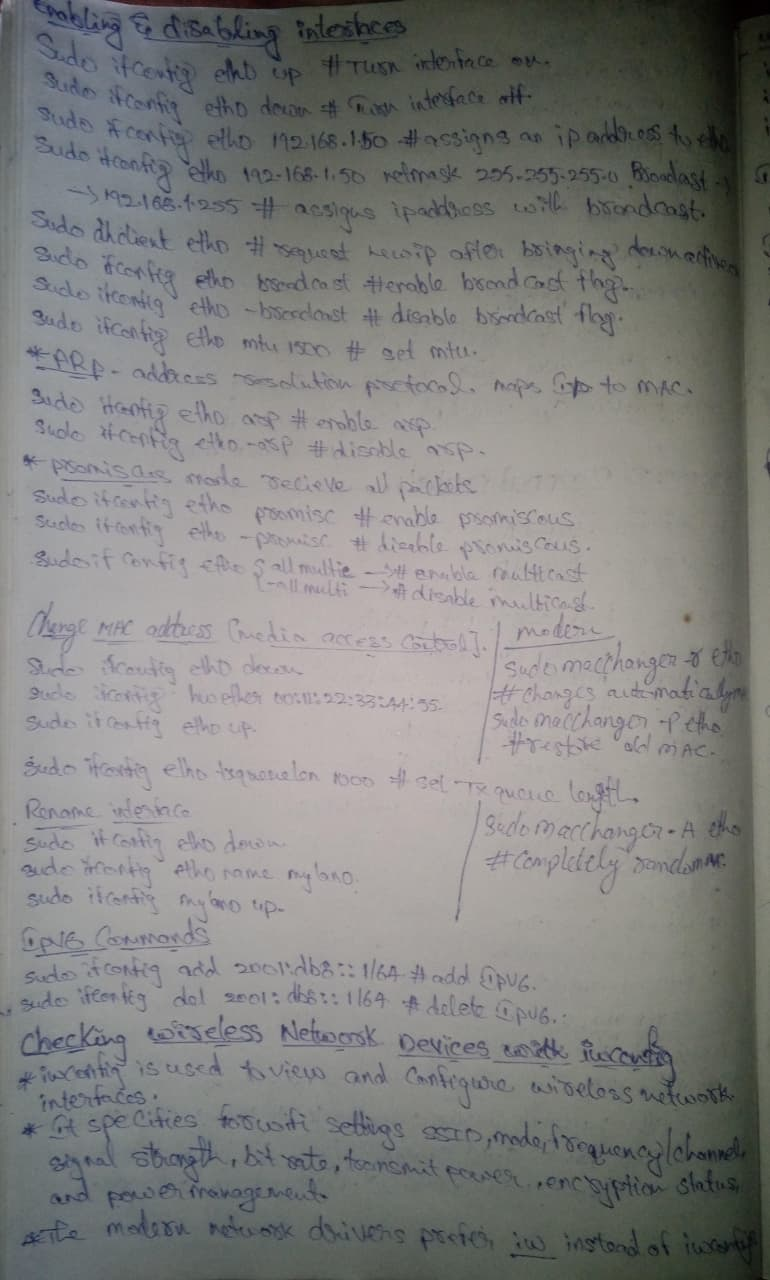 Enabling & disabling interfaces
Sudo ifconfig eth0 up # Turn interface on.
Sudo ifconfig eth0 down # Turn interface off.
Sudo ifconfig eth0 192.168.1.50 # assigns an ip address to eth0
Sudo ifconfig eth0 192.168.1.50 netmask 255.255.255.0 Broadcast →
→ 192.168.1.255 # assigns ipaddress with broadcast.
Sudo dhclient eth0 # request new ip after bringing down
Sudo ifconfig eth0 broadcast # enable broadcast flag.
Sudo ifconfig eth0 -broadcast # disable broadcast flag.
Sudo ifconfig eth0 mtu 1500 # set mtu.
* ARP - address resolution protocal. maps ip to MAC.
Sudo ifconfig eth0 arp # enable arp
Sudo ifconfig eth0 -arp # disable arp.
* mode recieve all packets
Sudo ifconfig eth0 promisc # enable promiscous
Sudo ifconfig eth0 -promisc # disable promiscous.
Sudo if config eth0 { allmultie → # enable multicast
{ -allmulti → # disable multicast.
Change MAC address [media access control].
Sudo ifconfig eth0 down
sudo ifconfig hw ether 00:11:22:33:44:55
Sudo ifconfig eth0 up.
modern
Sudo macchanger -r eth0
# changes automatically
Sudo macchanger -P eth0
# restore old MAC.
Sudo ifconfig eth0 txqueuelen 1000 # set Tx queue length.
Rename interface
sudo ifconfig eth0 down
sudo ifconfig eth0 name mylan0.
sudo ifconfig mylan0 up.
Sudo macchanger - A eth0
# Completely random
IPV6 Commands
sudo ifconfig add 2001:db8::1/64 # add IPV6.
sudo ifconfig del 2001:db8::1/64 # delete IPV6.
Checking wireless Network Devices with iwconfig
* iwconfig is used to view and configure wireless network
interfaces.
* It specifies for wifi settings SSID, mode, frequency/channel,
signal strength, bit rate, transmit power, encryption status,
and power management.
* The modern network drivers prefer iw instead of iwconfig